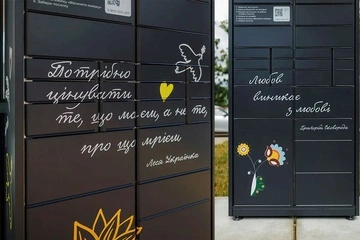 Потрібно
цінувати
те, що маєш, а не те,
про що мрієш
Леся Українка
Любов
виникає
з любові
Григорій Сковорода